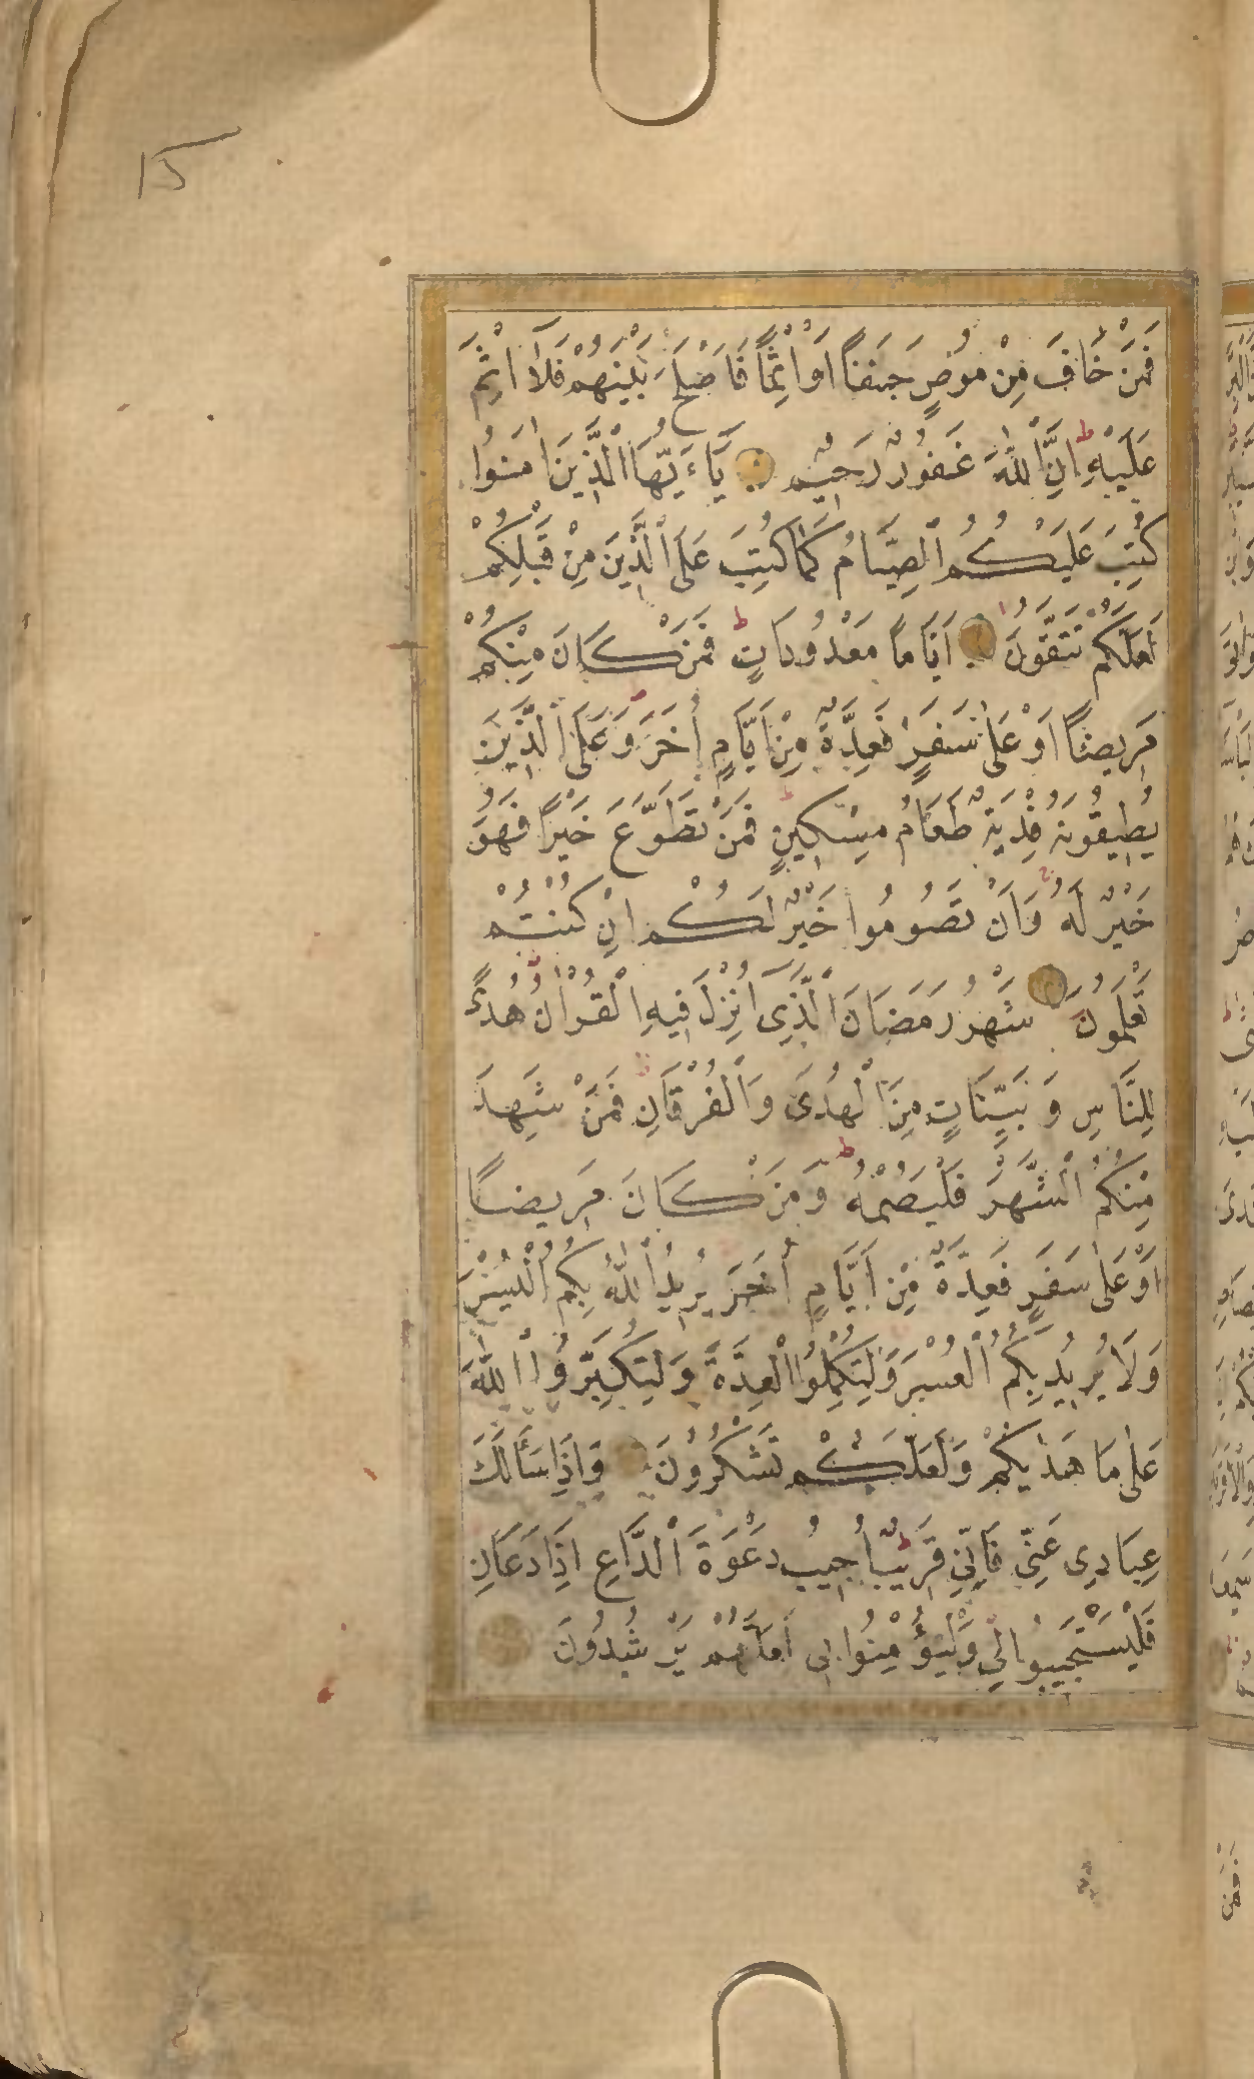 15
فَمَنْ خَافَ مِنْ مُوصٍ جَنَفًا اَوْ اِثْمًا فَاَصْلَحَ بَيْنَهُمْ فَلَا اِثْمَ
عَلَيْهِ ط اِنَّ اللّٰهَ غَفُورٌ رَحِيمٌ يَاءَيُّهَا الَّذِينَ اٰمَنُوا
كُتِبَ عَلَيْكُمُ الصِّيَامُ كَمَا كُتِبَ عَلَى الَّذِينَ مِنْ قَبْلِكُمْ
لَعَلَّكُمْ تَتَّقُونَ اَيَّامًا مَعْدُودَاتٍ ط فَمَنْ كَانَ مِنْكُمْ
مَرِيضًا اَوْ عَلٰى سَفَرٍ فَعِدَّةٌ مِنْ اَيَّامٍ اُخَرَ وَعَلَى الَّذِينَ
يُطِيقُونَهُ فِدْيَةٌ طَعَامُ مِسْكِينٍ ط فَمَنْ تَطَوَّعَ خَيْرًا فَهُوَ
خَيْرٌ لَهُ وَاَنْ تَصُومُوا خَيْرٌ لَكُمْ اِنْ كُنْتُمْ
تَعْلَمُونَ شَهْرُ رَمَضَانَ الَّذِى اُنْزِلَ فِيهِ الْقُرْاٰنُ هُدًى
لِلنَّاسِ وَ بَيِّنَاتٍ مِنَ الْهُدَى وَالْفُرْقَانِ فَمَنْ شَهِدَ
مِنْكُمُ الشَّهْرَ فَلْيَصُمْهُ ط وَمَنْ كَانَ مَرِيضًا
اَوْ عَلٰى سَفَرٍ فَعِدَّةٌ مِنْ اَيَّامٍ اُخَرَ يُرِيدُ اللّٰهُ بِكُمُ الْيُسْرَ
وَلَا يُرِيدُ بِكُمُ الْعُسْرَ وَلِتُكْمِلُوا الْعِدَّةَ وَلِتُكَبِّرُوا اللّٰهَ
عَلٰى مَا هَدٰيكُمْ وَلَعَلَّكُمْ تَشْكُرُونَ وَاِذَا سَأَلَكَ
عِبَادِى عَنِّى فَاِنِّى قَرِيبٌ ط اُجِيبُ دَعْوَةَ الدَّاعِ اِذَا دَعَانِ
فَلْيَسْتَجِيبُوا لِى وَلْيُؤْمِنُوا بِى لَعَلَّهُمْ يَرْشُدُونَ
فمن